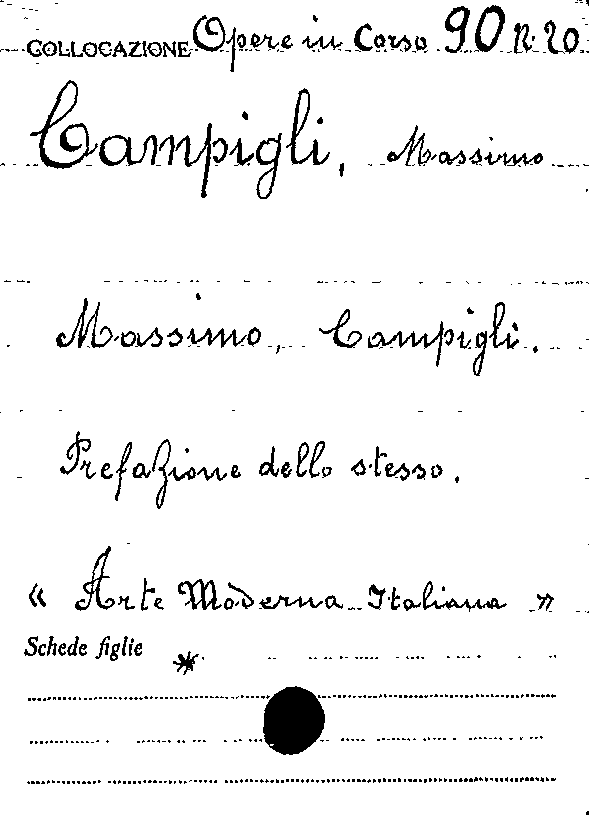 COLLOCAZIONE Opere in Corso 90 N. 20
Campigli, Massimo
Massimo, Campigli.
Prefazione dello stesso.
« Arte Moderna Italiana »
Schede figlie *